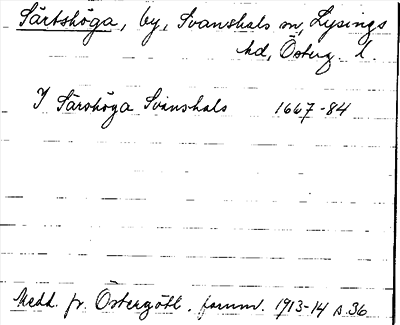 Särtshöga, by, Svanshals sn, Lysings
hd, Österg. l.
I Särshöga Svanshals 1667-84
Medd. fr. Östergötl. fornm. 1913-14 s. 36